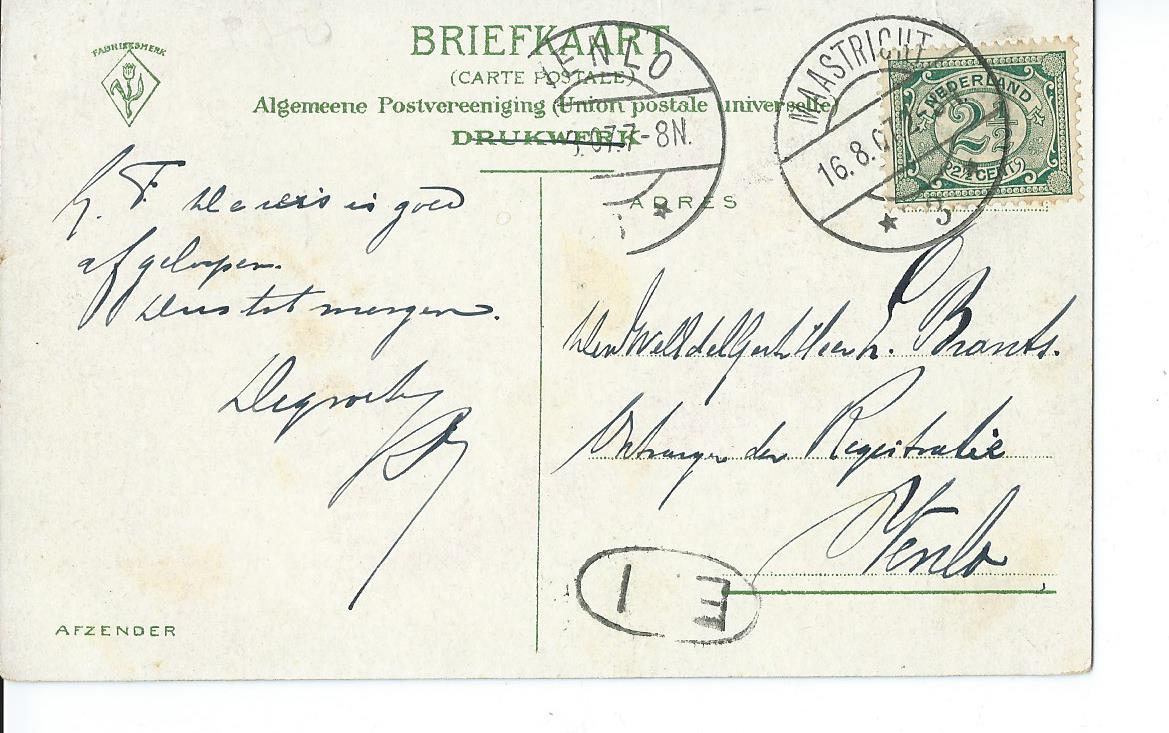 FABRIEKSMERK
BRIEFKAART
(CARTE POSTALE)
Algemeene Postvereeniging (Union postale universelle)
DRUKWERK
VENLO
.07.7-8N.
MAASTRICHT
16.8.07.
3
NEDERLAND
2½
2½ CENT
ADRES
G. F. De reis is goed
afgeloopen.
Dus tot morgen.
Degroet
Den WelEdelGeb Heer Brants.
Ontvanger der Registratie
Venlo
E I
AFZENDER